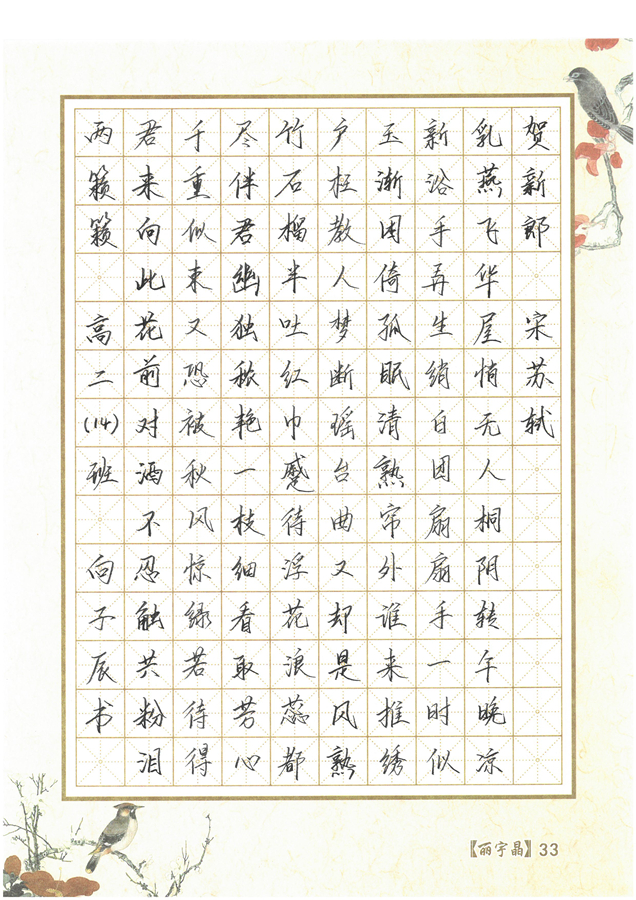 贺新郎 宋苏轼
乳燕飞华屋悄无人桐阴转午晚凉
新浴手弄生绡白团扇扇手一时似
玉渐困倚孤眠清熟帘外谁来推绣
户枉教人梦断瑶台曲又却是风熟
竹石榴半吐红巾蹙待浮花浪蕊都
尽伴君幽独秾艳一枝细看取芳心
千重似束又恐被秋风惊绿若待得
君来向此花前对酒不忍触共粉泪
两簌簌 高二(14)班 向子辰书
【丽宇晶】33